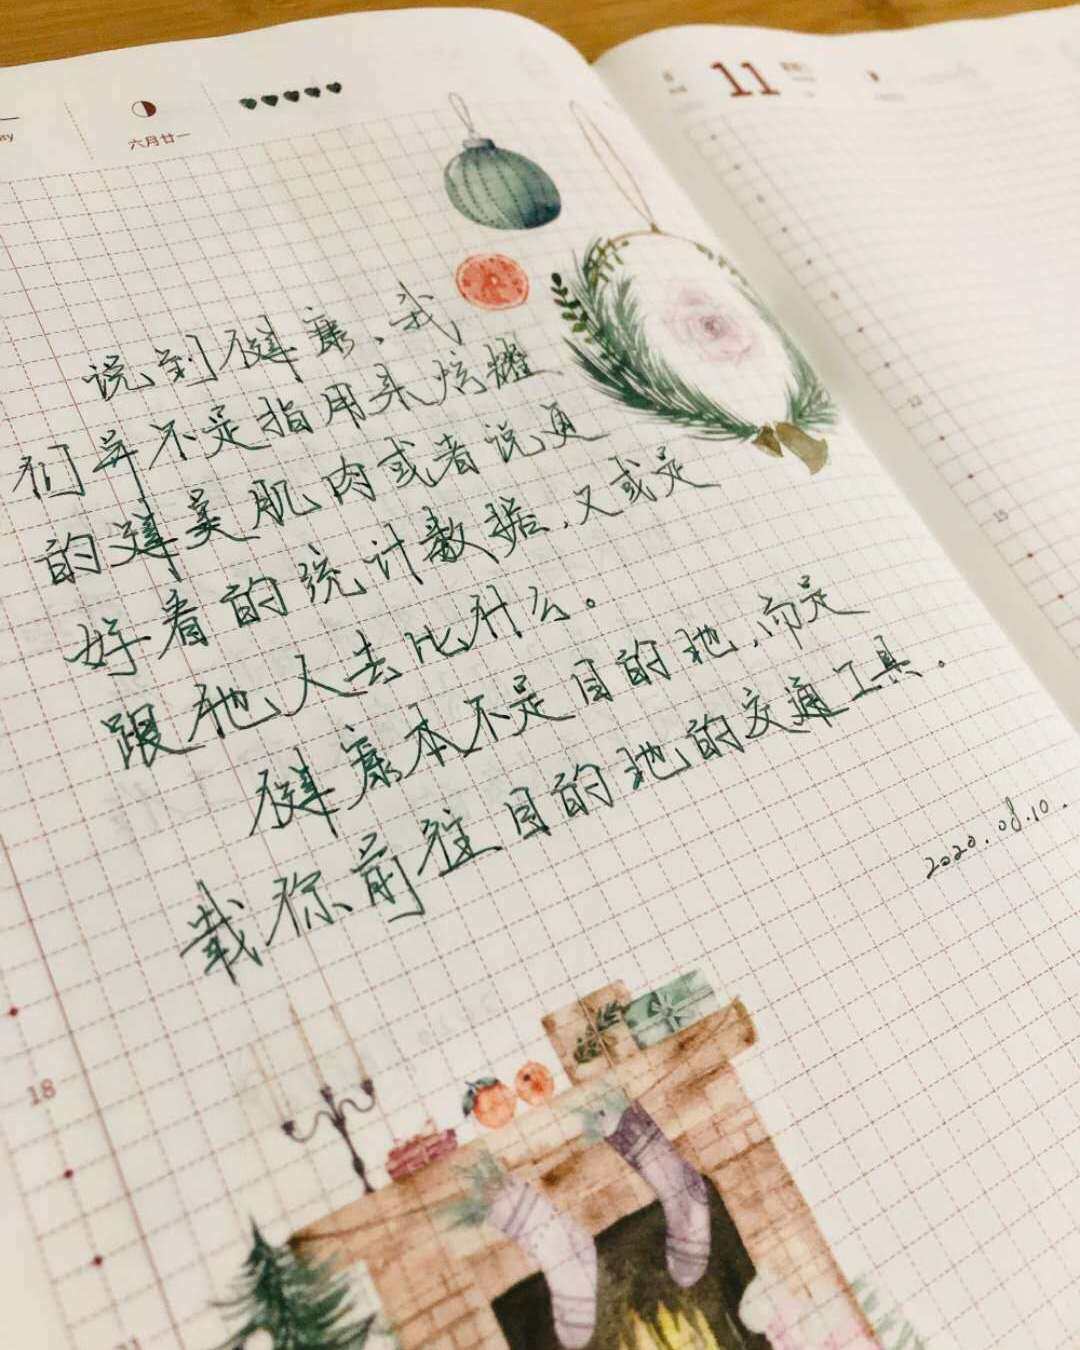 六月廿一
11
说到健康，我
们并不是指用来炫耀
的健美肌肉或者说更
好看的统计数据，又或是
跟他人去比什么。
健康本不是目的地，而是
载你前往目的地的交通工具。
2020.08.10.
12
15
18